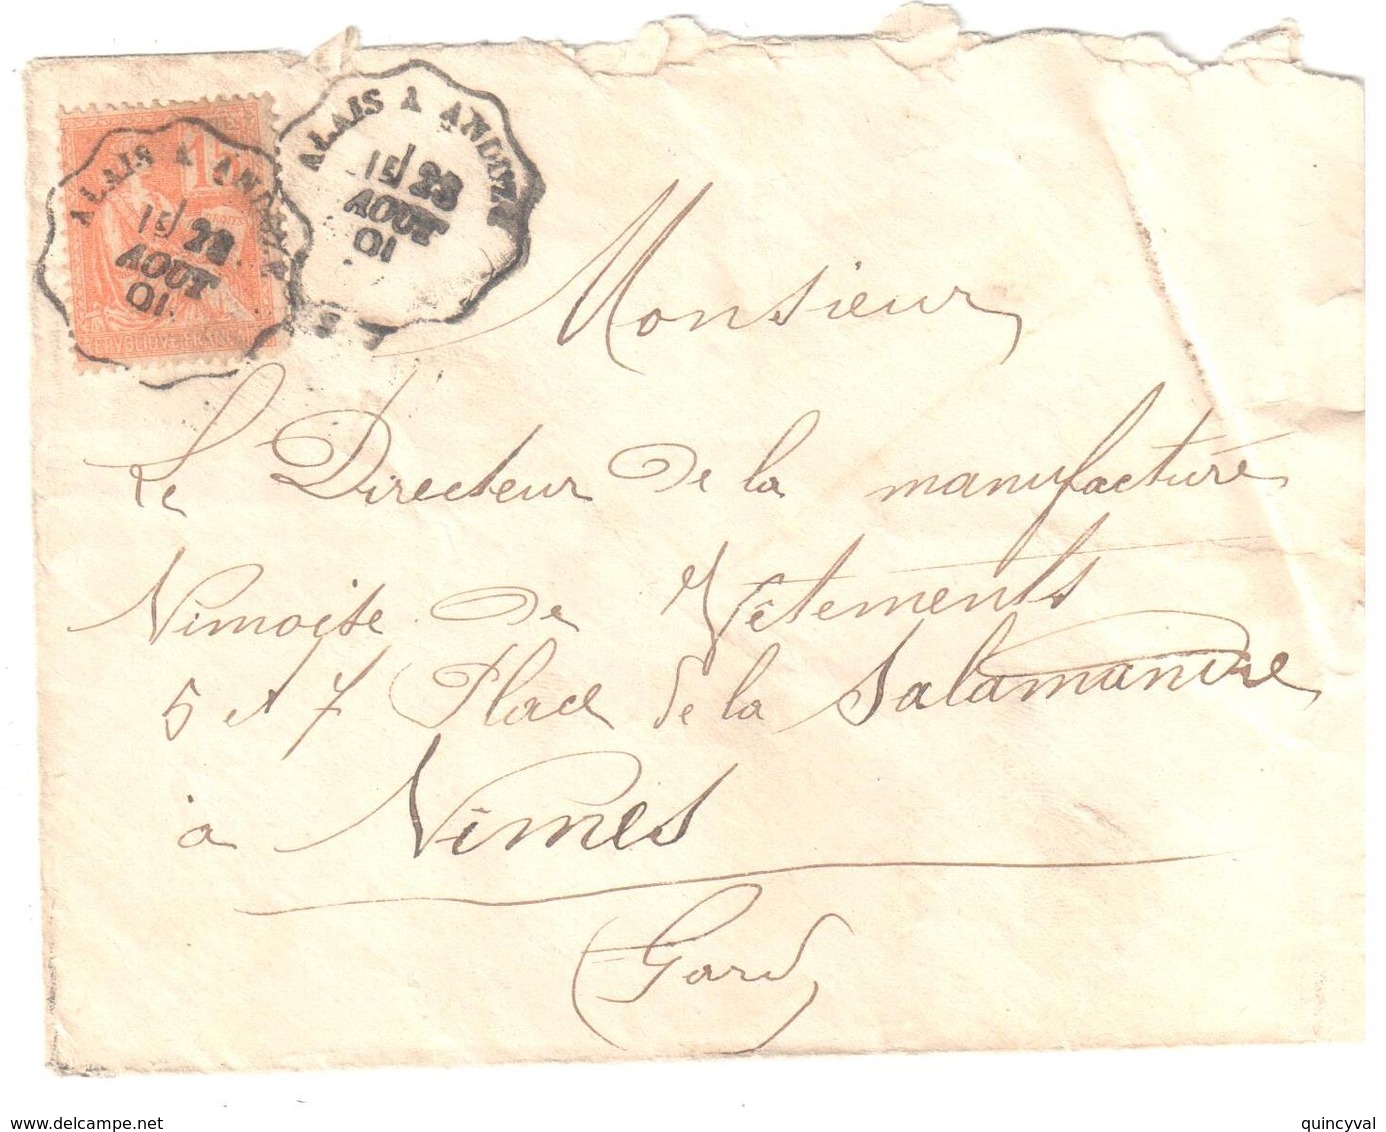 ALAIS A ANDUZE
1E/ 28
AOUT
01
ALAIS A ANDUZE
1E/ 28
AOUT
01
15
Monsieur
Le Directeur de la manufacture
Nimoise de Vêtements
5 et 7 Place de la Salamandre
à Nîmes
(Gard)
www.delcampe.net
quincyval